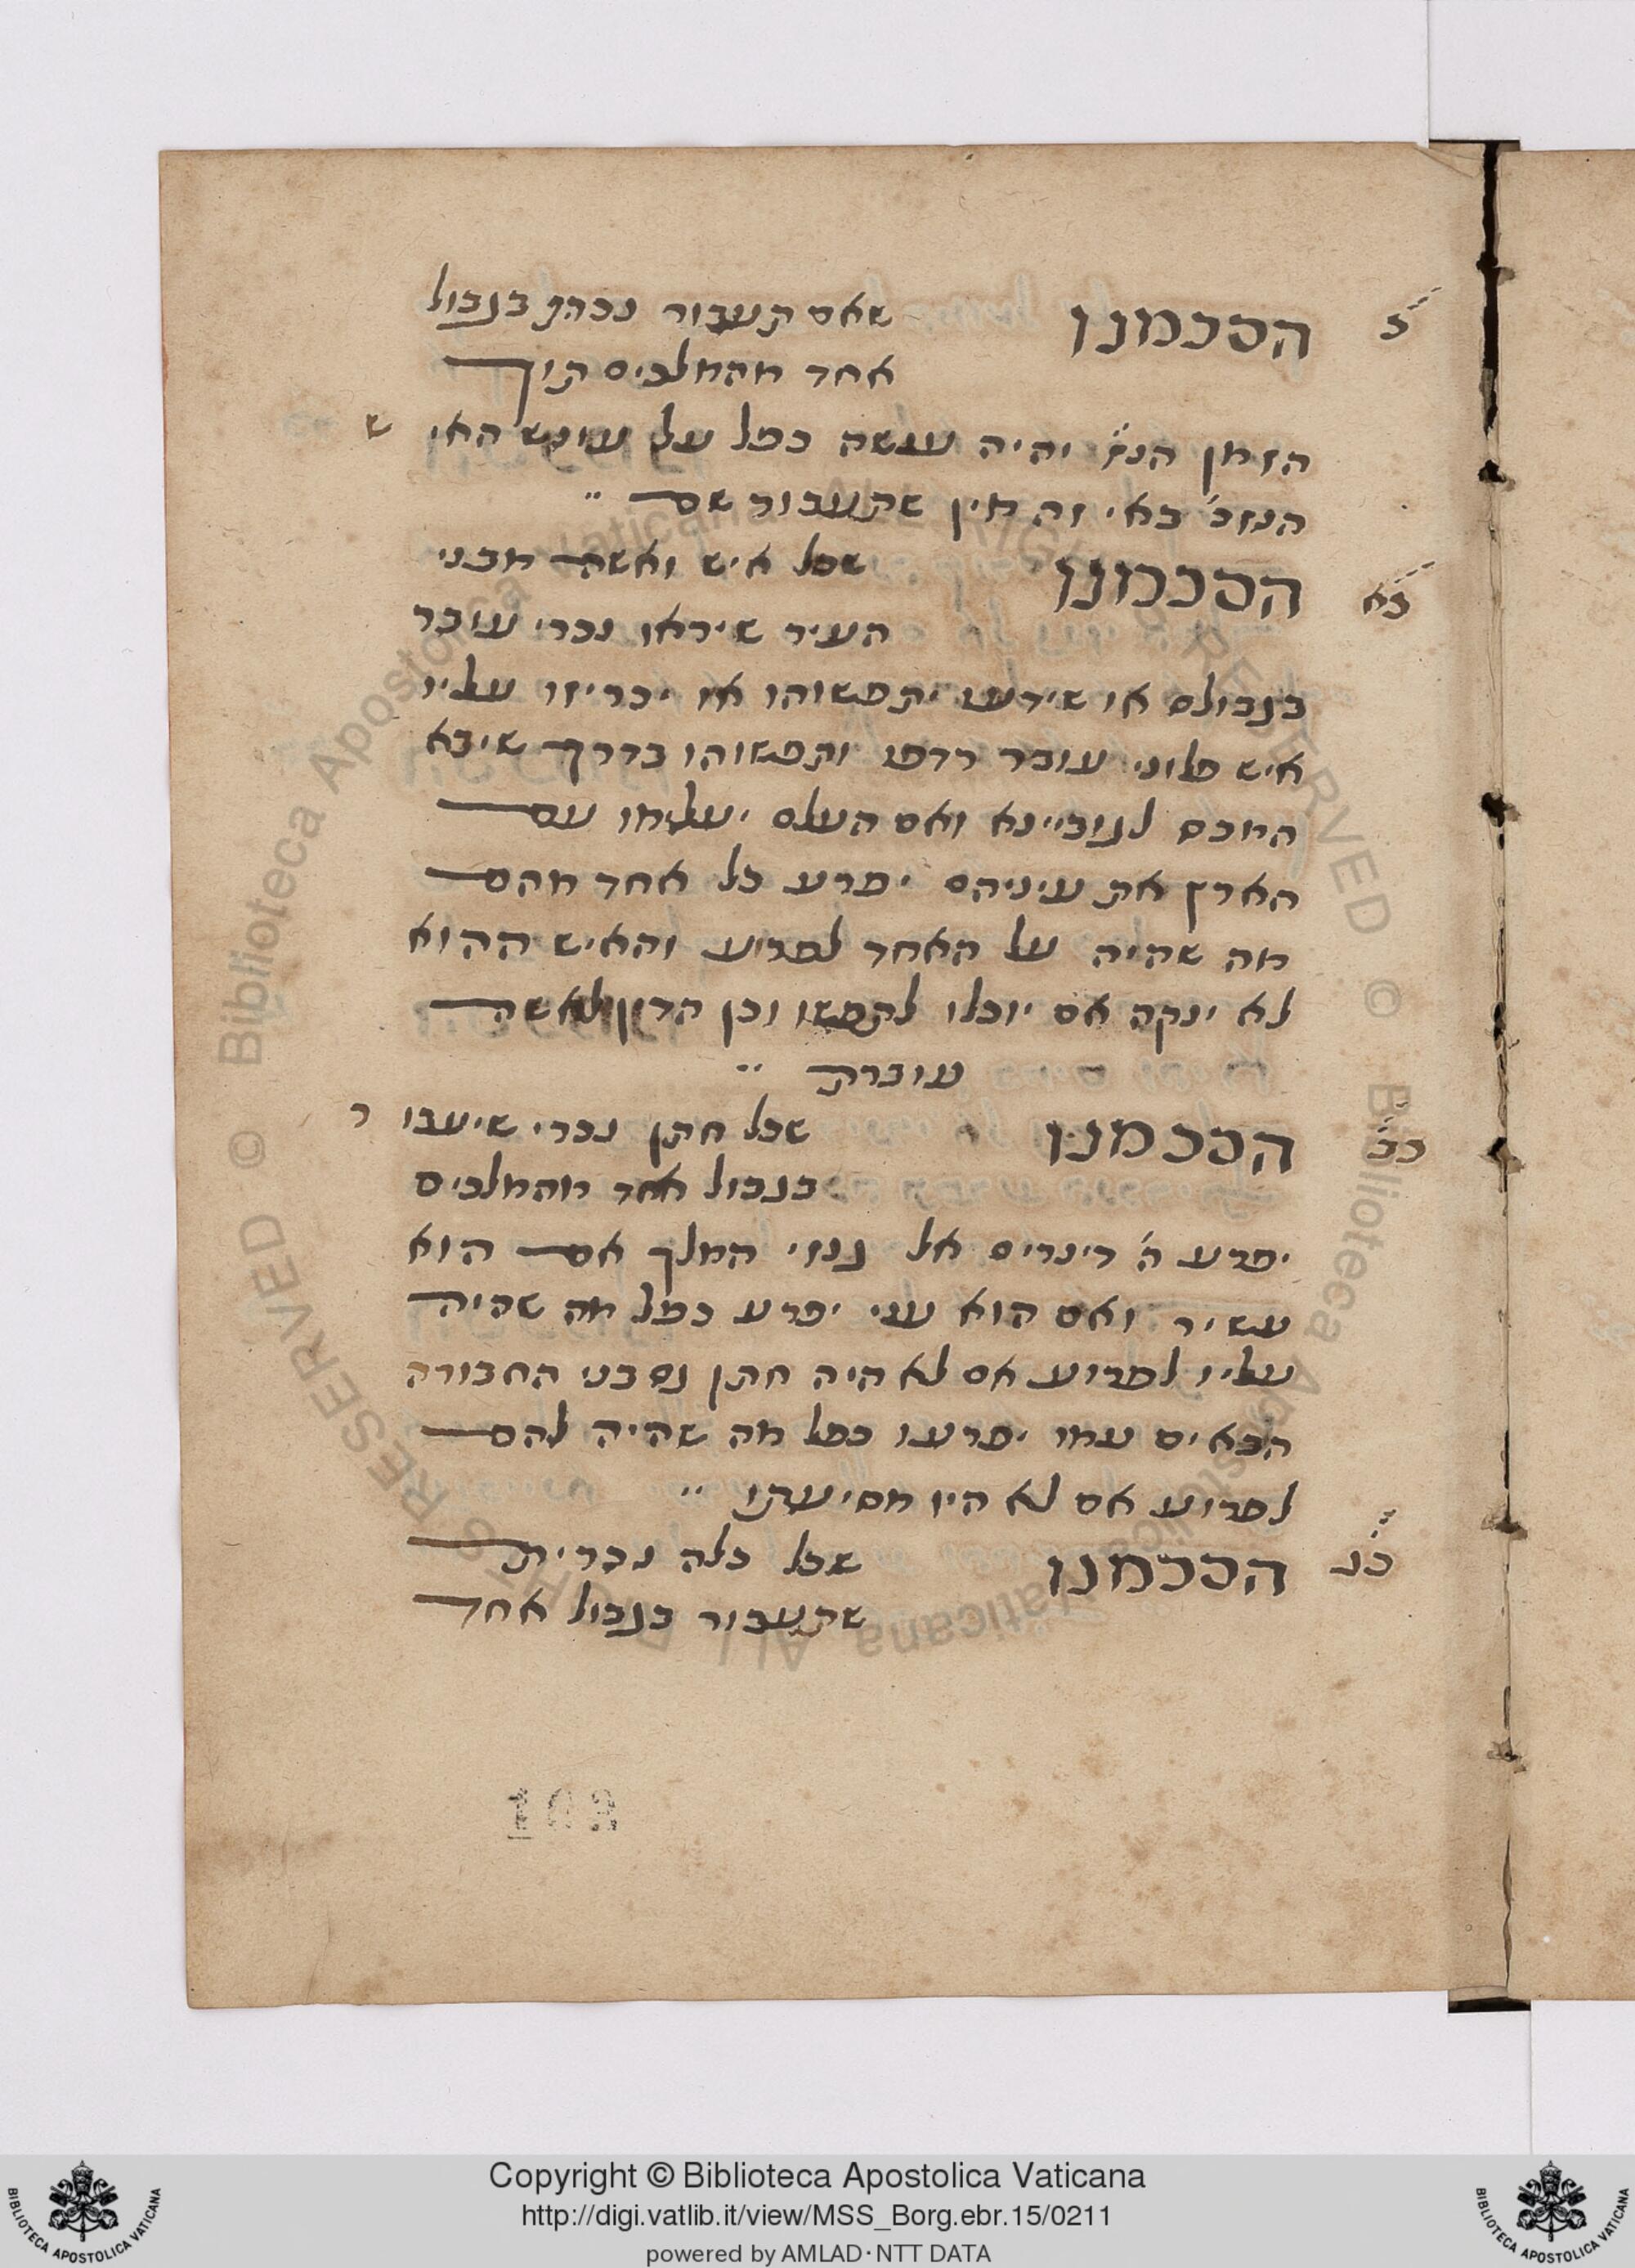 כ הסכמנו שאם תעבור נכרית בגבול
אחד מהמלכים תוך
הזמן הנז׳ יהיה ענשה כפל על עונש האי ש
הנזכ׳ באי זה מין שתעבור שם
כא הסכמנו שכל איש ואשה מבני
העיר שיראו נכרי עובר
בגבולם או שידעו יתפשוהו או יכריזו עליו
איש פלוני עובר רדפו ותפשוהו בדרך שיבא
המכס לגובײנא ואם העלם יעלימו עם
הארץ את עיניהם יפרע כל אחד מהם
מה שהיה על האחד לפרוע והאיש ההוא
לא ינקה אם יוכלו לתפשו וכן הדין לאשה
עוברת
כב הסכמנו שכל חתן נכרי שיעבו ר
בגבול אחד מהמלכים
יפרע ה׳ דינרים אל גנזי המלך אם הוא
עשיר ואם הוא עני יפרע כפל מה שהיה
עליו לפרוע אם לא היה חתן גם בני החבורה
הבאים עמו יפרעו כפל מה שהיה להם
לפרוע אם לא היו מסיעתו
כג הסכמנו שכל כלה נכרית
שתעבור בגבול אחד
103
Copyright © Biblioteca Apostolica Vaticana
http://digi.vatlib.it/view/MSS_Borg.ebr.15/0211
powered by AMLAD·NTT DATA